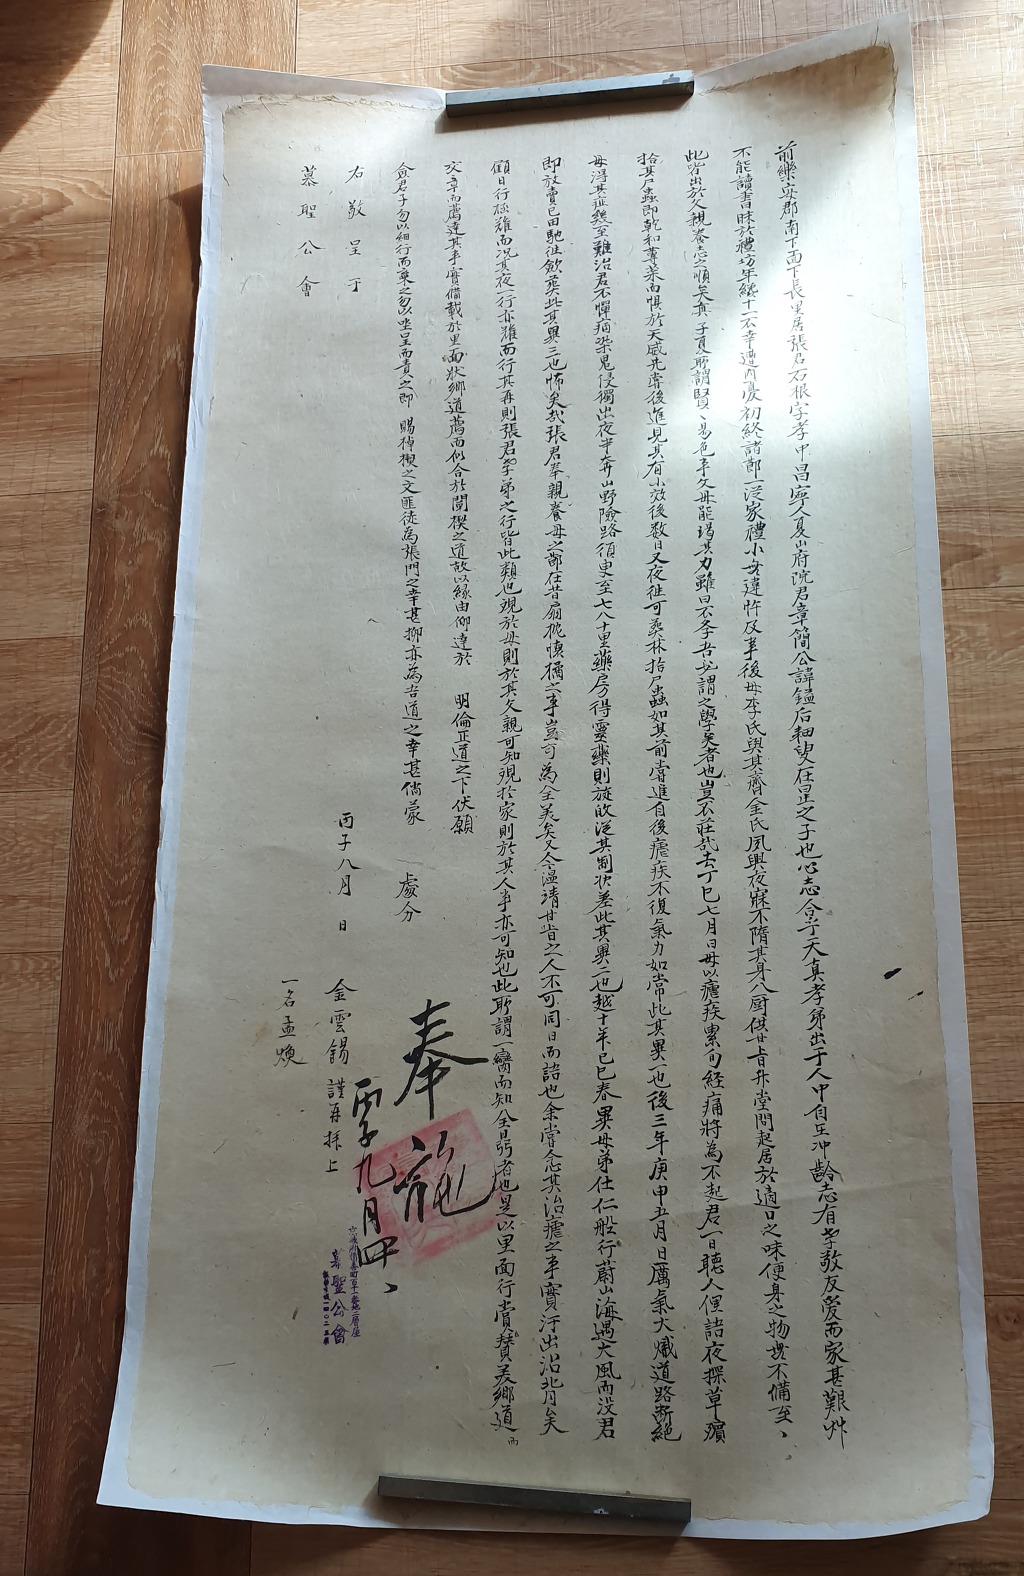 前樂安郡南下面下長里居張君石根字孝中昌寧人夏山府院君章簡公諱鎰后細叟在昰之子也心志合乎天眞孝弟出于人中自在冲齡志有孝敬友愛而家甚艱艸
不能讀書昧於禮坊年纔十一不幸遭內憂初終諸節一從家禮小無違忤及事後母李氏與其齊金氏夙興夜寐不惰其身入厨供甘旨升堂問起居於適口之味便身之物無不備至丶
此皆出於父親養志之順矣眞子夏所謂賢丶易色事父母能竭其力雖曰不學吾必謂之學矣者也豈不莊哉去丁巳七月日母以瘧疾累旬經痛將為不起君一日聽人俚語夜探草殯
拾其尸蟲即乾和葷菜而懼於天感先嘗後進見其有小效後數日又夜往可葬林拾尸蟲如其前嘗進自後瘧疾不復氣力如常此其異一也後三年庚申五月日厲氣大熾道路斷絕
母得其症幾至難治君不憚病染鬼侵獨出夜半奔山野險路須臾至七八十里藥房得靈藥則旋故從其制狀差此其異二也越十年己巳春異母弟仕仁船行蔚山海遇大風而没君
即放賣已田馳往斂葬此其異三也怖矣哉張君奉親養母之節在昔扇枕懷橘之事豈可為全美矣又今溫凊甘旨之人不可同日而語也余嘗念其治瘧之事實汗出沾背矣
顧日行極難而况其夜一行亦難而行其再則張君孝弟之行皆此類也現於母則於其父親可知現於家則於其人事亦可知也此所謂一臠而知全鼎者也是以里面行賞贊美鄉道而
文章而薦達其事實備載於里面狀鄉道薦而似合於閭楔之道故以緣由仰達於 明倫正道之下伏願
僉君子勿以細行而棄之勿以坐呈而責之即 賜棹楔之文匪徒為張門之幸甚抑亦為吾道之幸甚倘蒙 處分
右敬呈于
慕聖公會
丙子八月 日
金雲錫 謹再拜上
一名孟煥
奉龍
丙子九月四日丶
慕聖公會